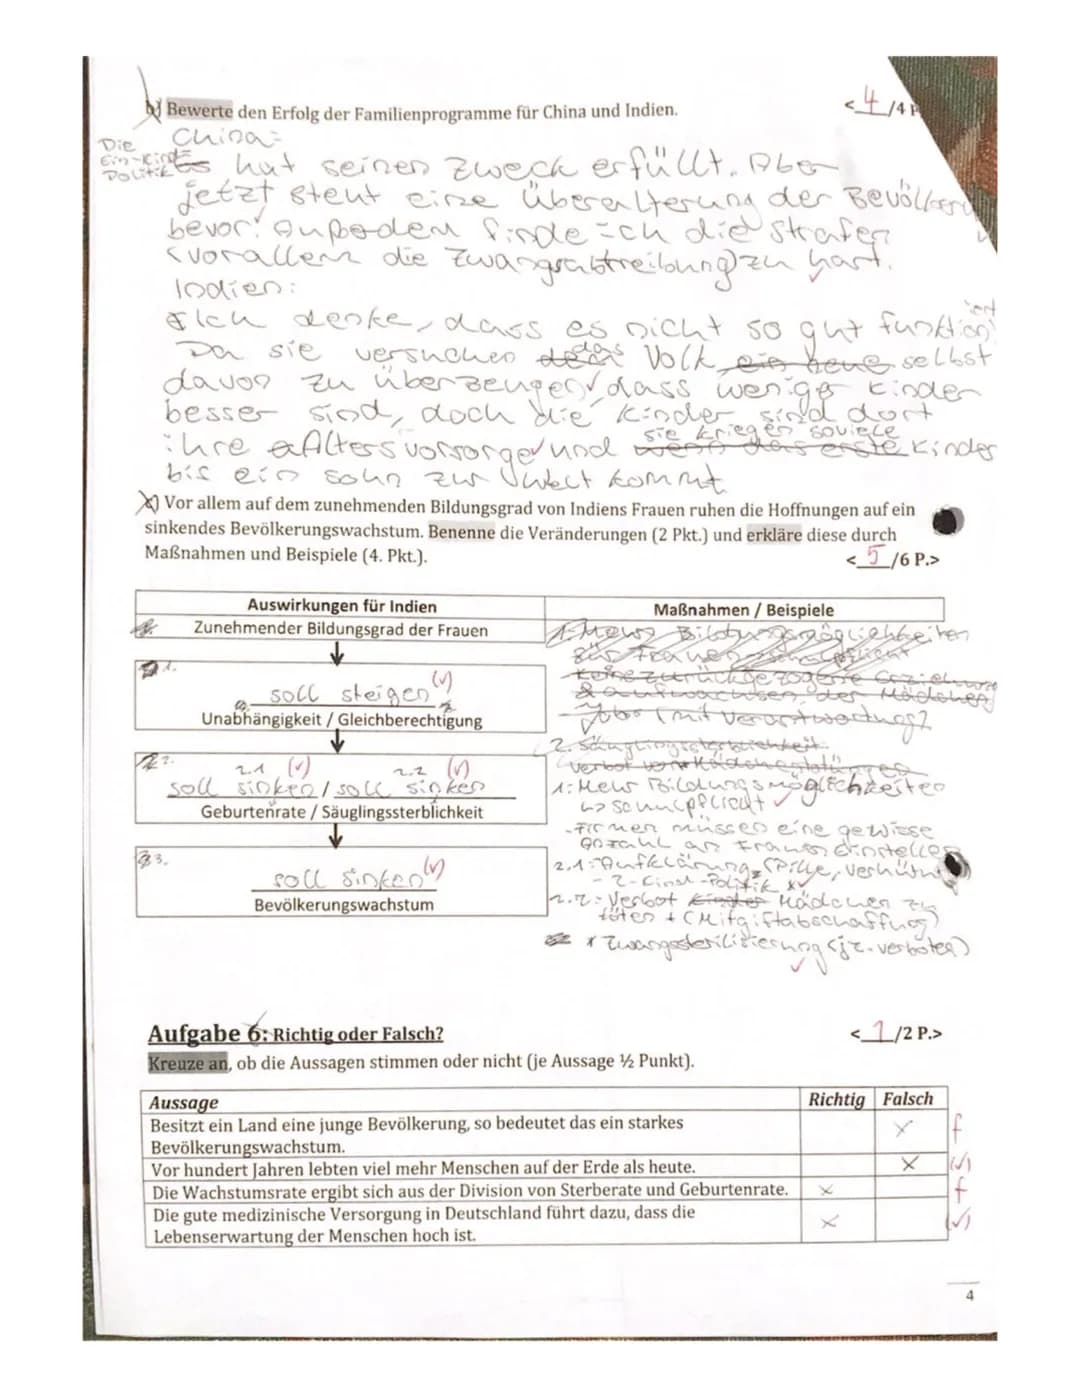 b) Bewerte den Erfolg der Familienprogramme für China und Indien.
< 4 /4 P
China:
Die Ein-Kind Politik
Es hat seinen Zweck erfüllt. Aber
jetzt steht eine Überalterung der Bevölker
bevor! Außedem finde ich die Strafen
(vorallem die Zwangsabtreibung) zu hart.
Indien:
Ich denke, dass es nicht so gut funktioniert
Da sie versuchen das Volk selbst
davon zu überzeugen, dass weniger Kinder
besser sind, doch die Kinder sind dort
ihre Altersvorsorge und sie kriegen soviele Kinder
bis ein Sohn zur Welt kommt
Vor allem auf dem zunehmenden Bildungsgrad von Indiens Frauen ruhen die Hoffnungen auf ein
sinkendes Bevölkerungswachstum. Benenne die Veränderungen (2 Pkt.) und erkläre diese durch
Maßnahmen und Beispiele (4. Pkt.).
< 5 /6 P.>
Auswirkungen für Indien
Maßnahmen / Beispiele
Zunehmender Bildungsgrad der Frauen
1. Mehr Bildungsmöglichkeiten
für Frauen
keine zurückgezogene Erziehung
& aufwachsen der Mädchen
Jobs (mit Verantwortung)
1.
soll steigen (✓)
Unabhängigkeit / Gleichberechtigung
2. Säuglingssterblichkeit:
Verbot von Mädchentötungen
2.
2.1 (✓) 2.2 (✓)
soll sinken / soll sinken
Geburtenrate / Säuglingssterblichkeit
1: Mehr Bildungsmöglichkeiten
↳ Schulpflicht ✓
- Firmen müssen eine gewisse
Anzahl an Frauen einstellen
3.
soll sinken (✓)
Bevölkerungswachstum
2.1: Aufklärung, (Pille, Verhütun
- 2-Kind-Politik *✓
2.2: Verbot Mädchen zu
töten + (Mitgiftabschaffung)
* Zwangssterilisierung (jz. verboten)
✓
Aufgabe 6: Richtig oder Falsch?
< 1 /2 P.>
Kreuze an, ob die Aussagen stimmen oder nicht (je Aussage ½ Punkt).
Aussage Richtig Falsch
Besitzt ein Land eine junge Bevölkerung, so bedeutet das ein starkes
Bevölkerungswachstum. x f
Vor hundert Jahren lebten viel mehr Menschen auf der Erde als heute. x (✓)
Die Wachstumsrate ergibt sich aus der Division von Sterberate und Geburtenrate. x f
Die gute medizinische Versorgung in Deutschland führt dazu, dass die
Lebenserwartung der Menschen hoch ist. x (✓)
4